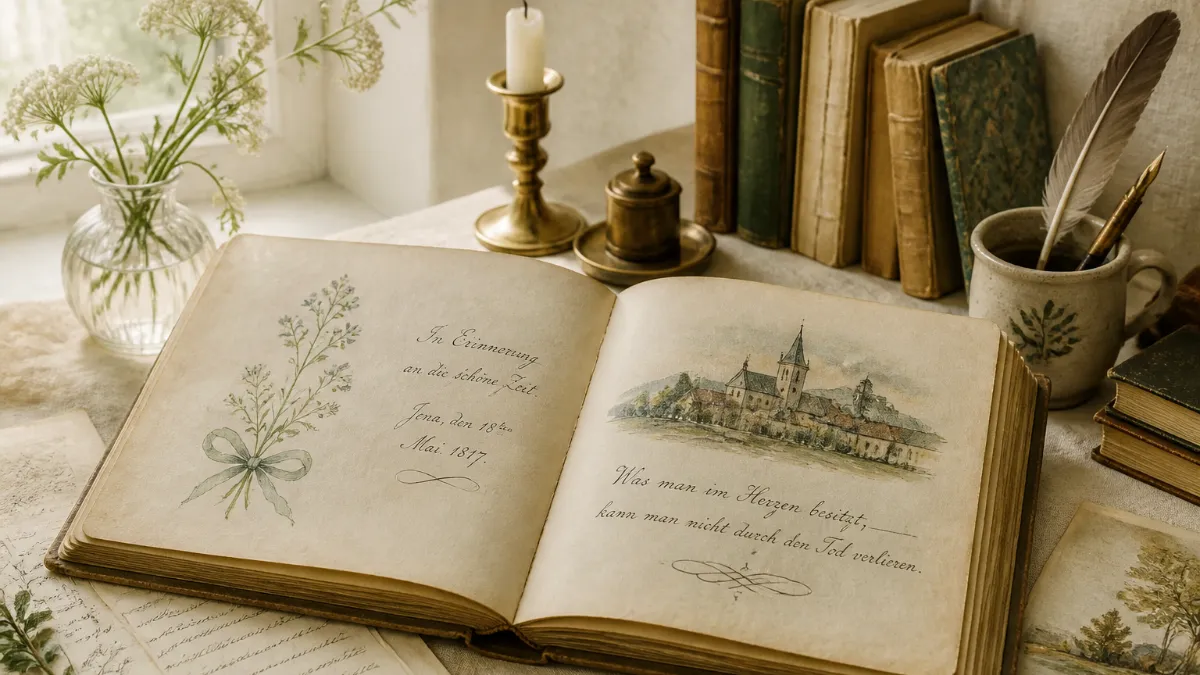 In Erinnerung
an die schöne Zeit.
Jena, den 18ten
Mai. 1817.
Was man im Herzen besitzt,—
kann man nicht durch den Tod verlieren.